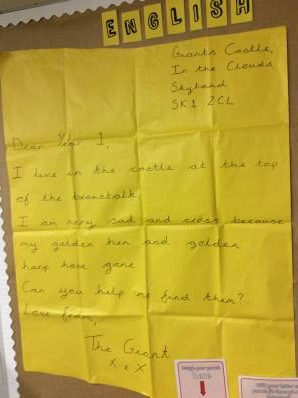 ENGLISH
Giants Castle,
In the Clouds
Skyland
SK1 2CL
Dear Year 1,
I live in the castle at the top
of the beanstalk.
I am very sad and cross because
my golden hen and golden
harp have gone.
Can you help me find them?
Love from,
The Giant
x x x
here